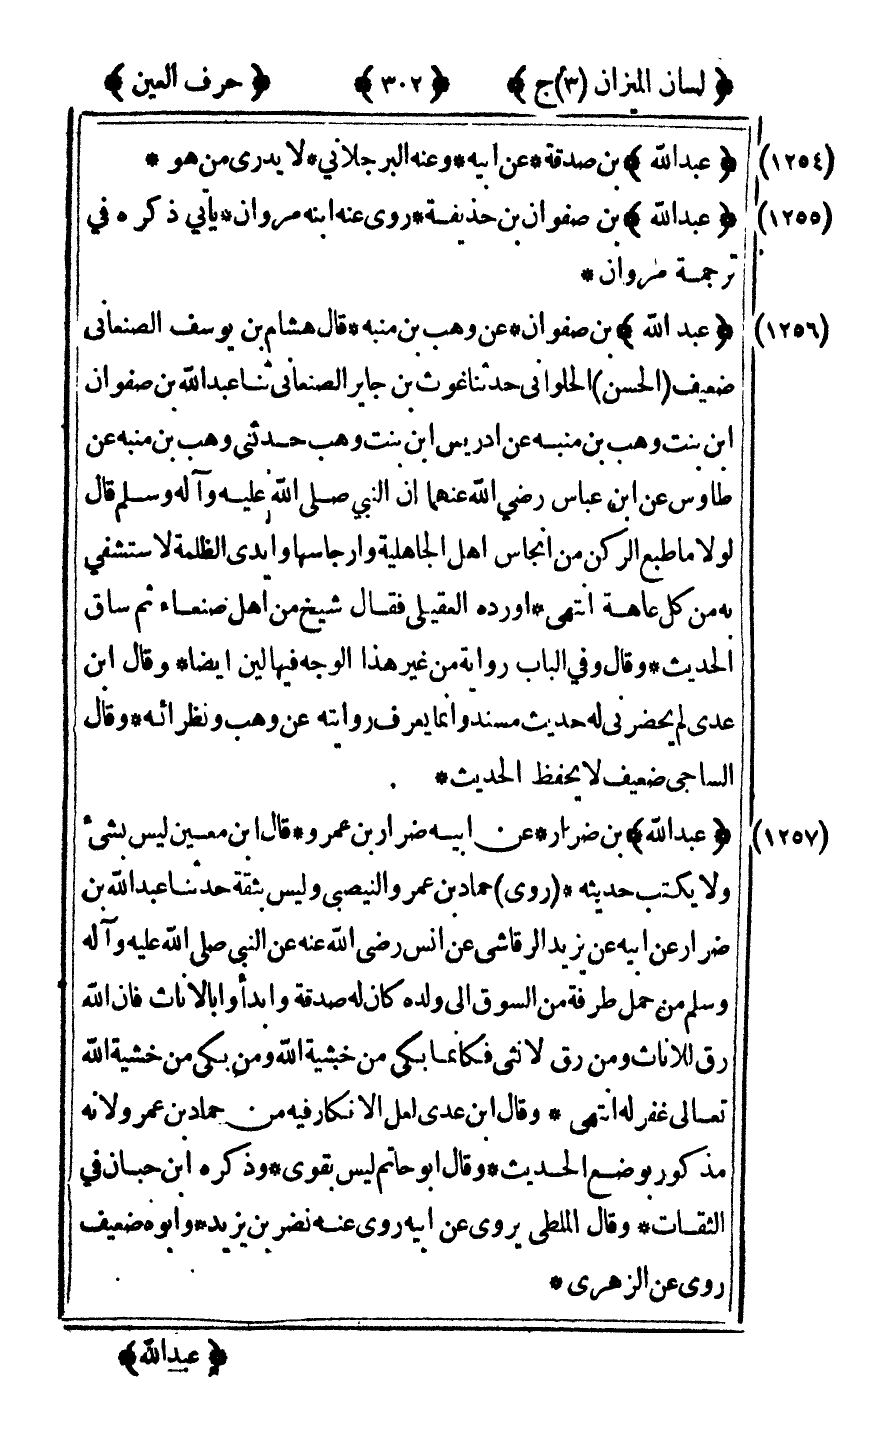 ﴿ لسان الميزان (٣)ج ﴾ ﴿ ٣٠٢ ﴾ ﴿ حرف العين ﴾
(١٢٥٤) ﴿ عبدالله ﴾ بن صدقة * عن ابيه * وعنه البرجلاني * لا يدرى من هو *
(١٢٥٥) ﴿ عبدالله ﴾ بن صفوان بن حذيفة * روى عنه ابنه مروان * يأتي ذكره في
ترجمة مروان *
(١٢٥٦) ﴿ عبد الله ﴾ بن صفوان * عن وهب بن منبه * قال هشام بن يوسف الصنعانى
ضعيف (الحسن) الحلوانى حدثنا غوث بن جابر الصنعانى ثنا عبدالله بن صفوان
ابن بنت وهب بن منبه عن ادريس ابن بنت وهب حدثنى وهب بن منبه عن
طاوس عن ابن عباس رضي الله عنهما ان النبي صلى الله عليه وآله وسلم قال
لولا ما طبع الركن من انجاس اهل الجاهلية وارجاسها وايدى الظلمة لاستشفي
به من كل عاهة انتهى * اورده العقيلى فقال شيخ من اهل صنعاء ثم ساق
الحديث * وقال وفي الباب رواية من غير هذا الوجه فيها لين ايضا * وقال ابن
عدى لم يحضرنى له حديث مسند وانما يعرف روايته عن وهب ونظرائه * وقال
الساجى ضعيف لا يحفظ الحديث *
(١٢٥٧) ﴿ عبدالله ﴾ بن ضرار * عن ابيه ضرار بن عمرو * قال ابن معين ليس بشىء
ولا يكتب حديثه * (روى) حماد بن عمرو النيصبى وليس بثقة حدثنا عبدالله بن
ضرار عن ابيه عن يزيد الرقاشى عن انس رضى الله عنه عن النبي صلى الله عليه وآله
وسلم من حمل طرفة من السوق الى ولده كان له صدقة وابدأوا بالاناث فان الله
رق للاناث ومن رق لانثى فكانما بكى من خشية الله ومن بكى من خشية الله
تعالى غفر له انتهى * وقال ابن عدى لعل الانكار فيه من حماد بن عمرو لانه
مذكور بوضع الحديث * وقال ابو حاتم ليس بقوى * وذكره ابن حبان في
الثقات * وقال الملطى يروى عن ابيه روى عنه نضر بن يزيد * وابوه ضعيف
روى عن الزهرى *
﴿ عبدالله ﴾